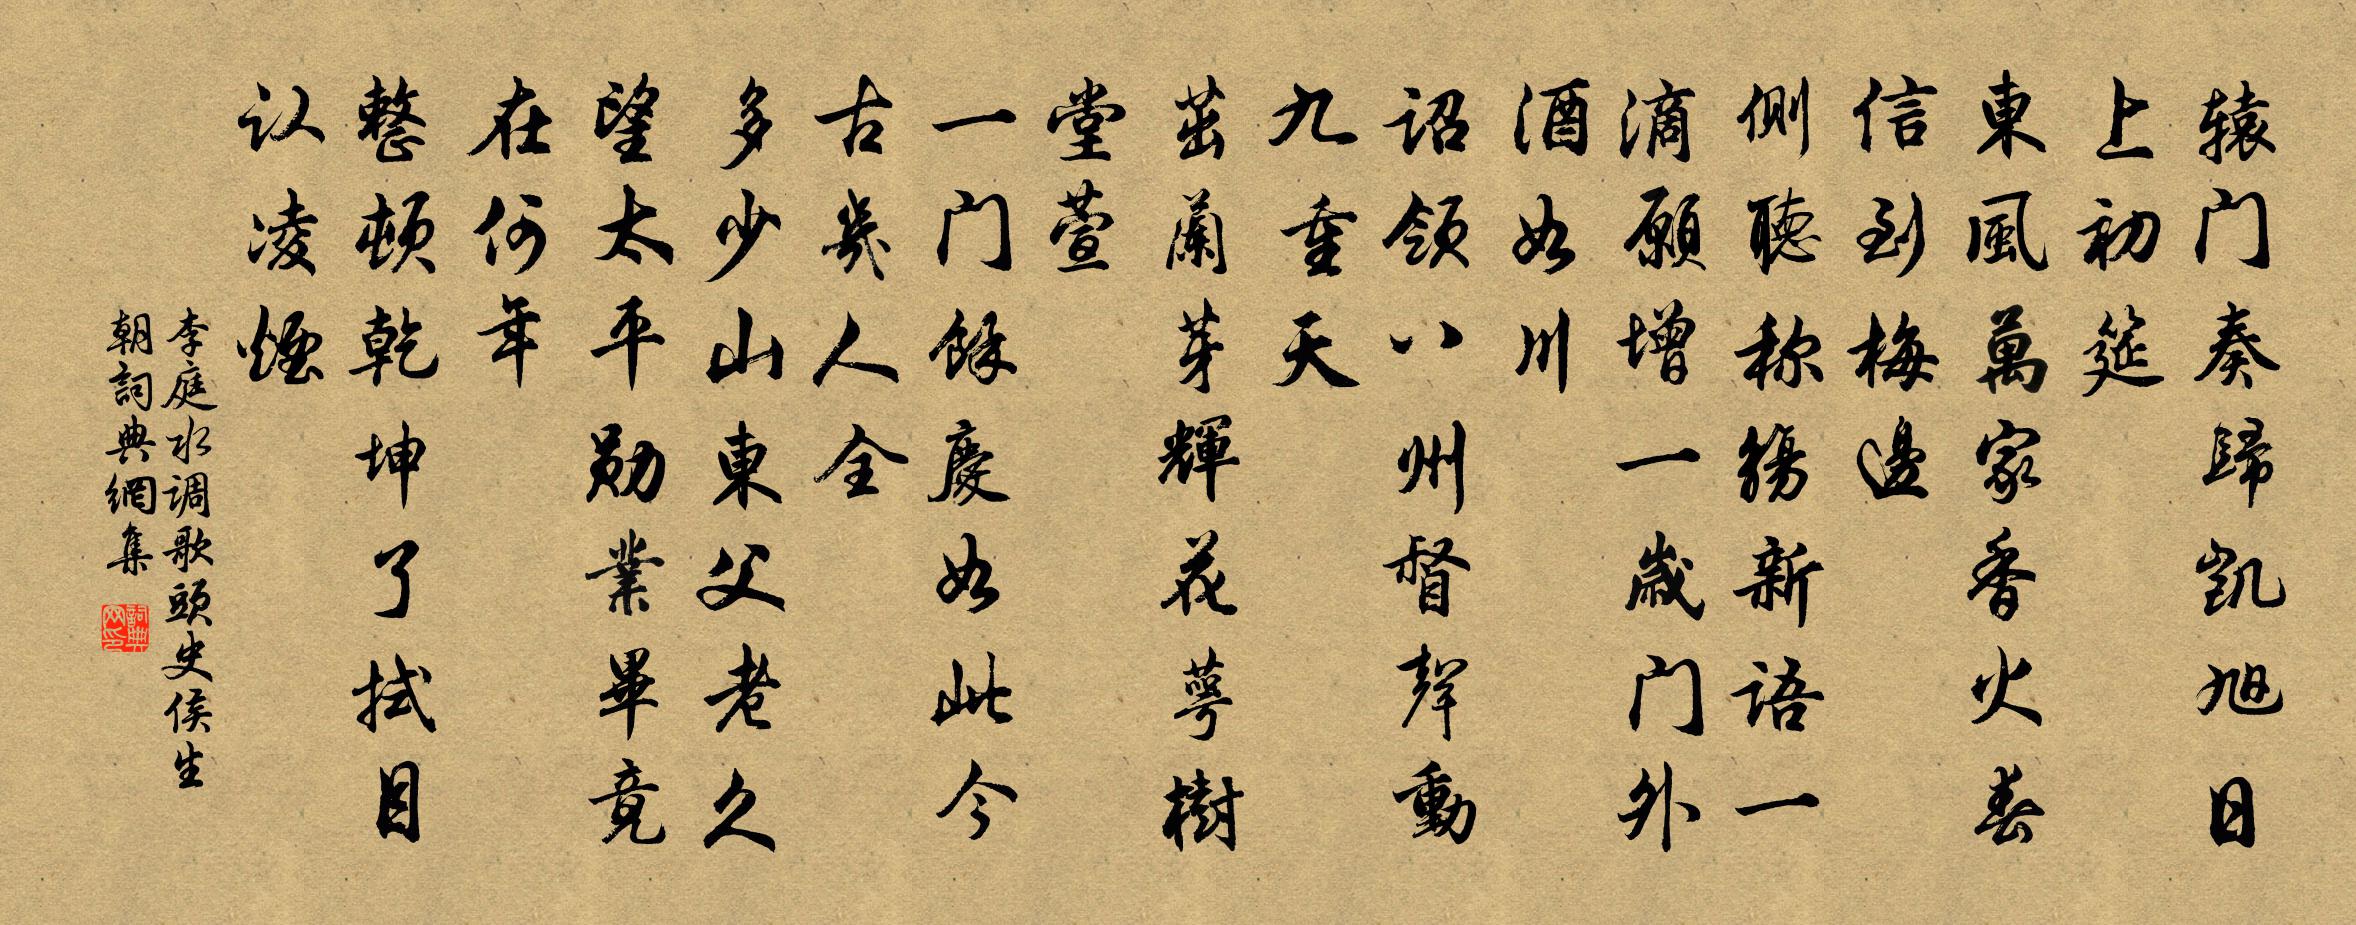 辕门奏歸凯旭日
上初筵
東風萬家香火春
信到梅邊
侧聽称觞新语一
滴願增一歳门外
酒如川
诏领八州督聲動
九重天
茁蘭芽輝花萼樹
堂萱
一门餘慶如此今
古幾人全
多少山東父老久
望太平勋業畢竟
在何年
整頓乾坤了拭目
认凌煙
李庭水调歌頭史侯生
朝詞典網集
詞典网印